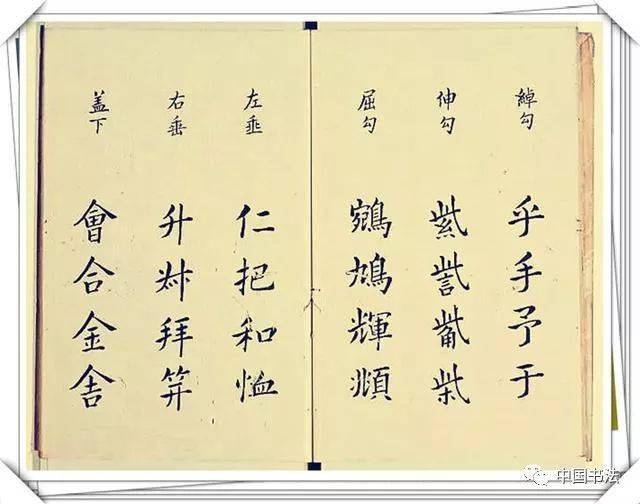 綽勾
乎手予于
伸勾
紫訾觜柴
屈勾
鵷鳩輝頫
左垂
仁把和恤
右垂
升拜笄
盖下
會合金舍
中国书法